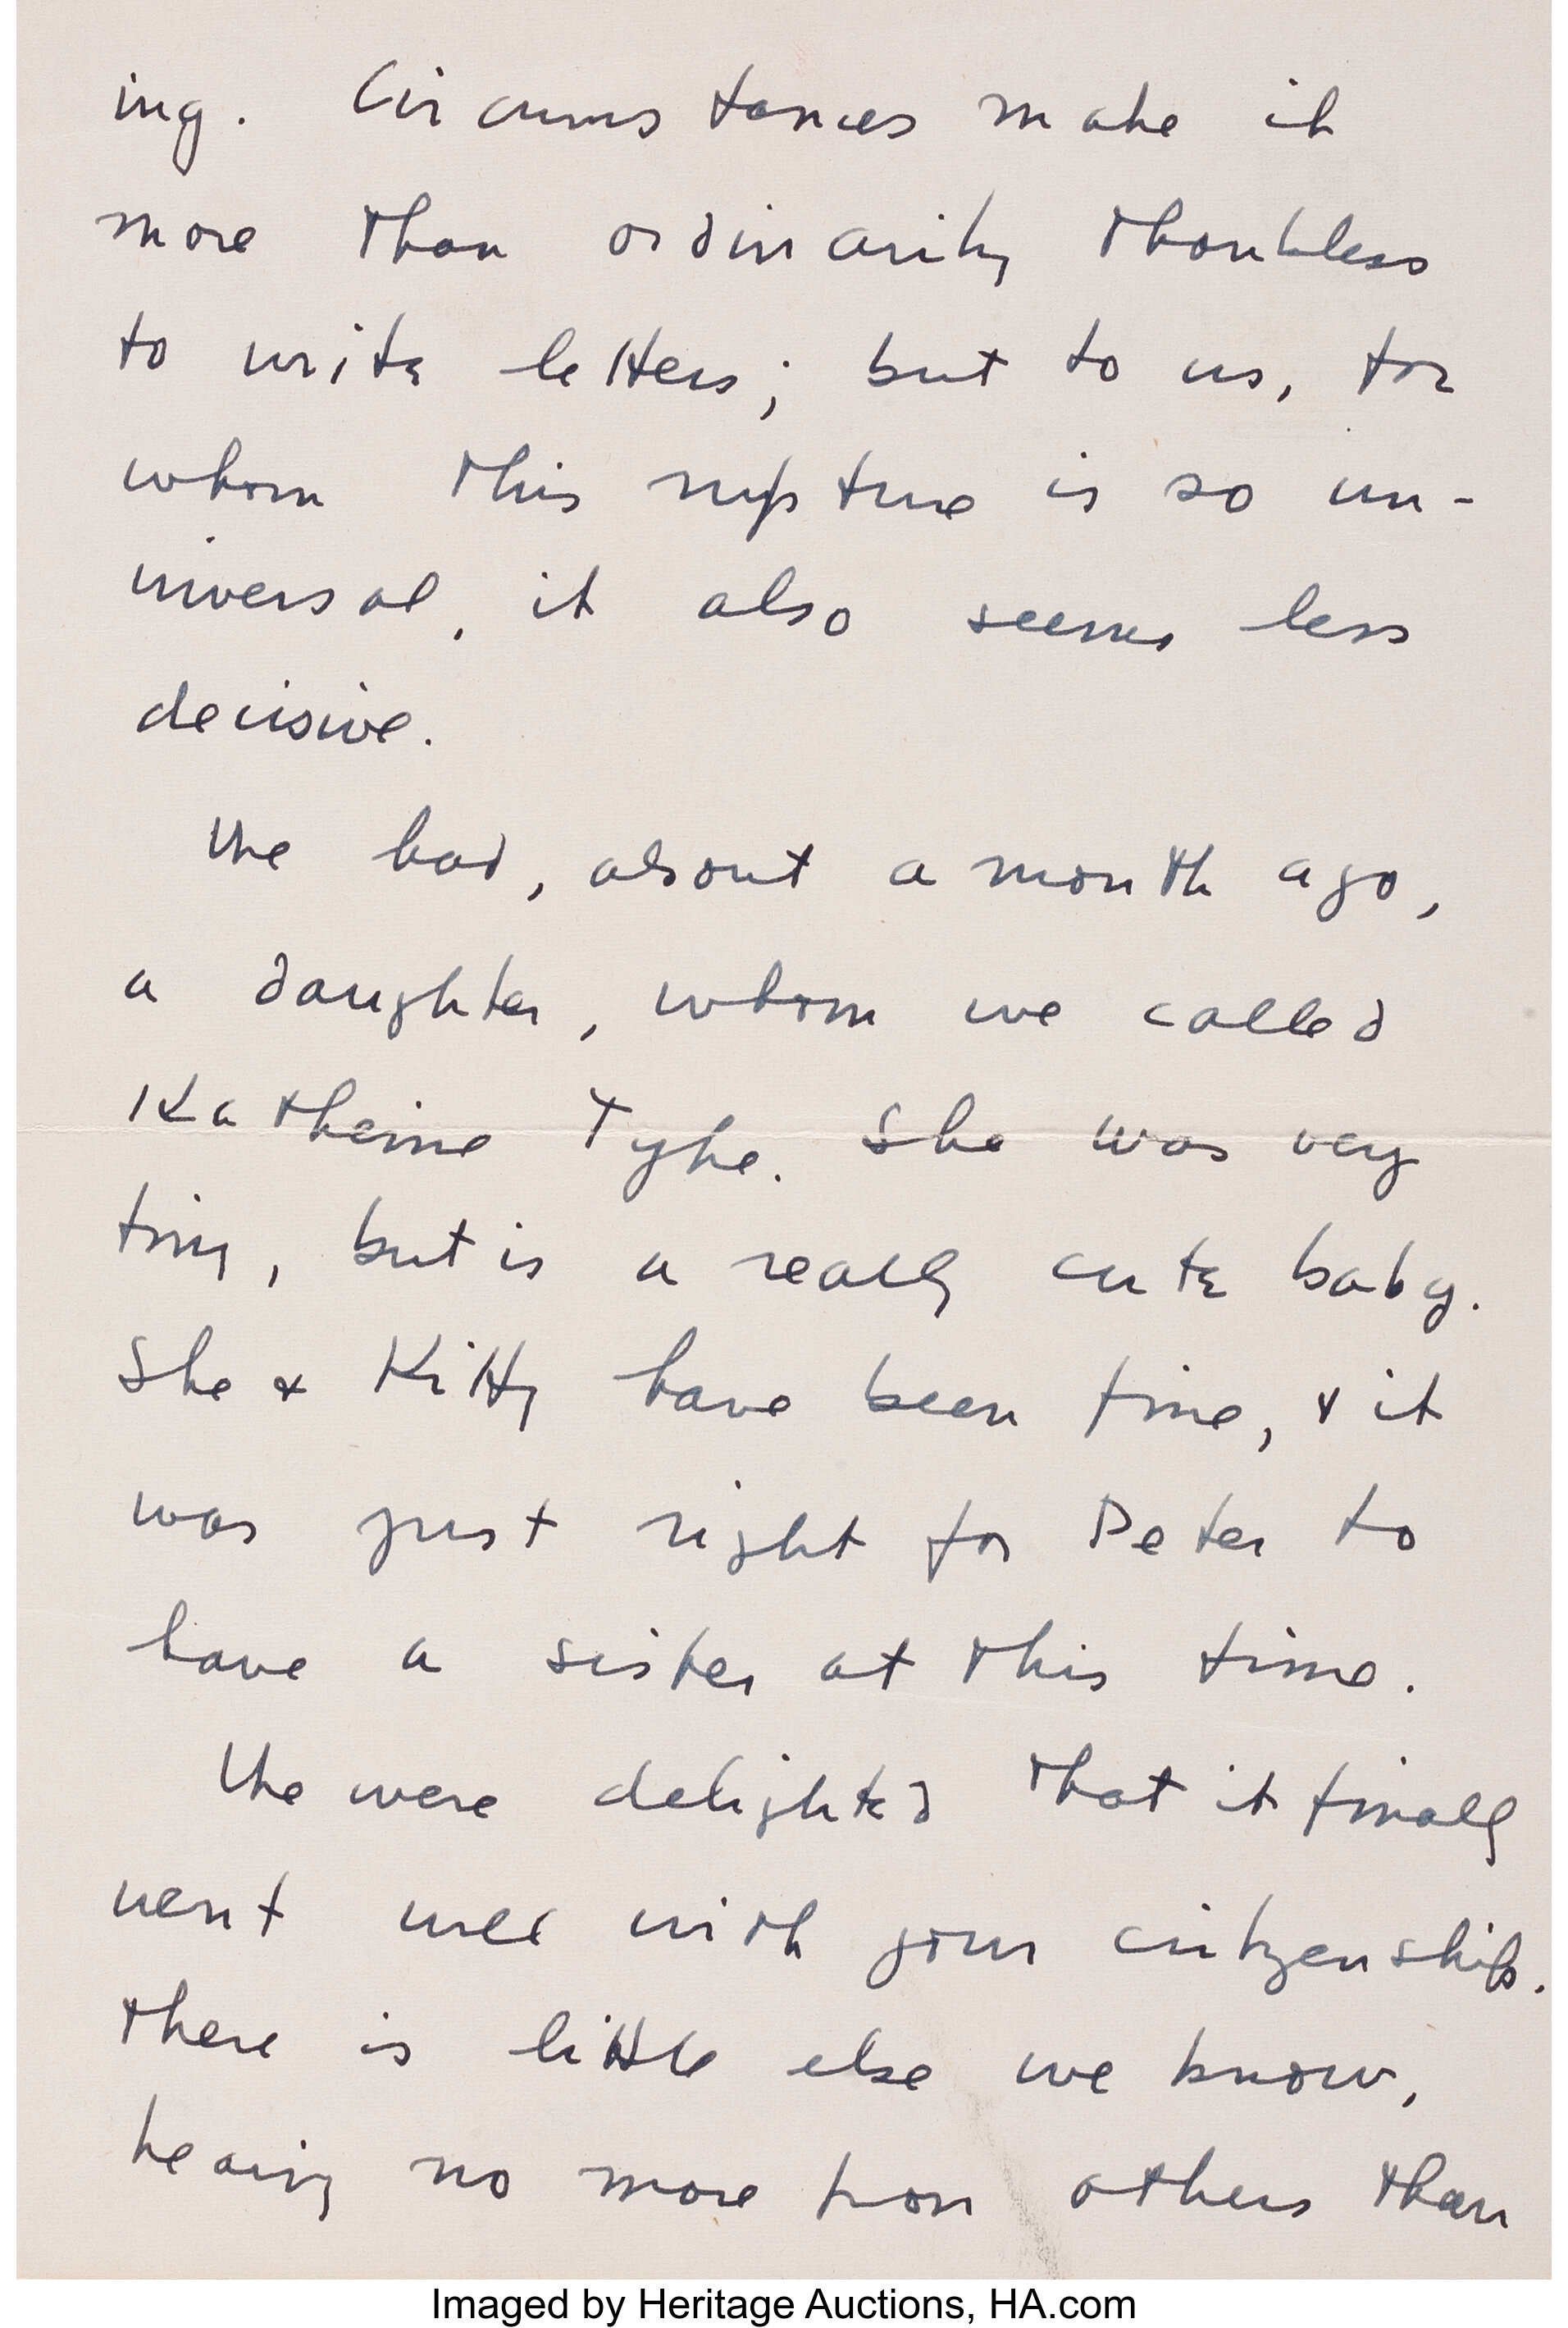 ing. Circumstances make it
more than ordinarily thankless
to write letters; but to us, for
whom this rupture is so un-
iversal, it also seems less
decisive.
We had, about a month ago,
a daughter, whom we called
Katherine Tyke. She was very
tiny, but is a really cute baby.
She & Kitty have been fine, & it
was just right for Peter to
have a sister at this time.
We were delighted that it finally
went well with your citizenship.
There is little else we know,
hearing no more from others than
Imaged by Heritage Auctions, HA.com